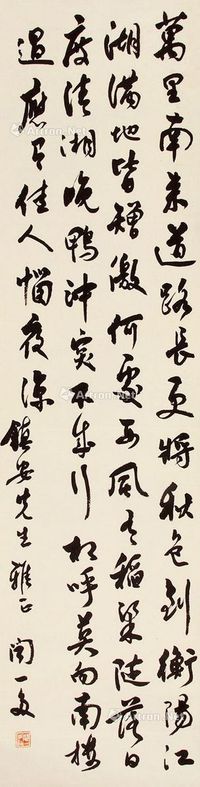 萬里南来道路長更將秋色到衡陽江
湖滿地皆矰繳何處西風有稻粱陡落日
度清湘晚鴨沖突不成行相呼莫向南樓
過應有佳人惱夜涼鎮安先生雅正聞一多